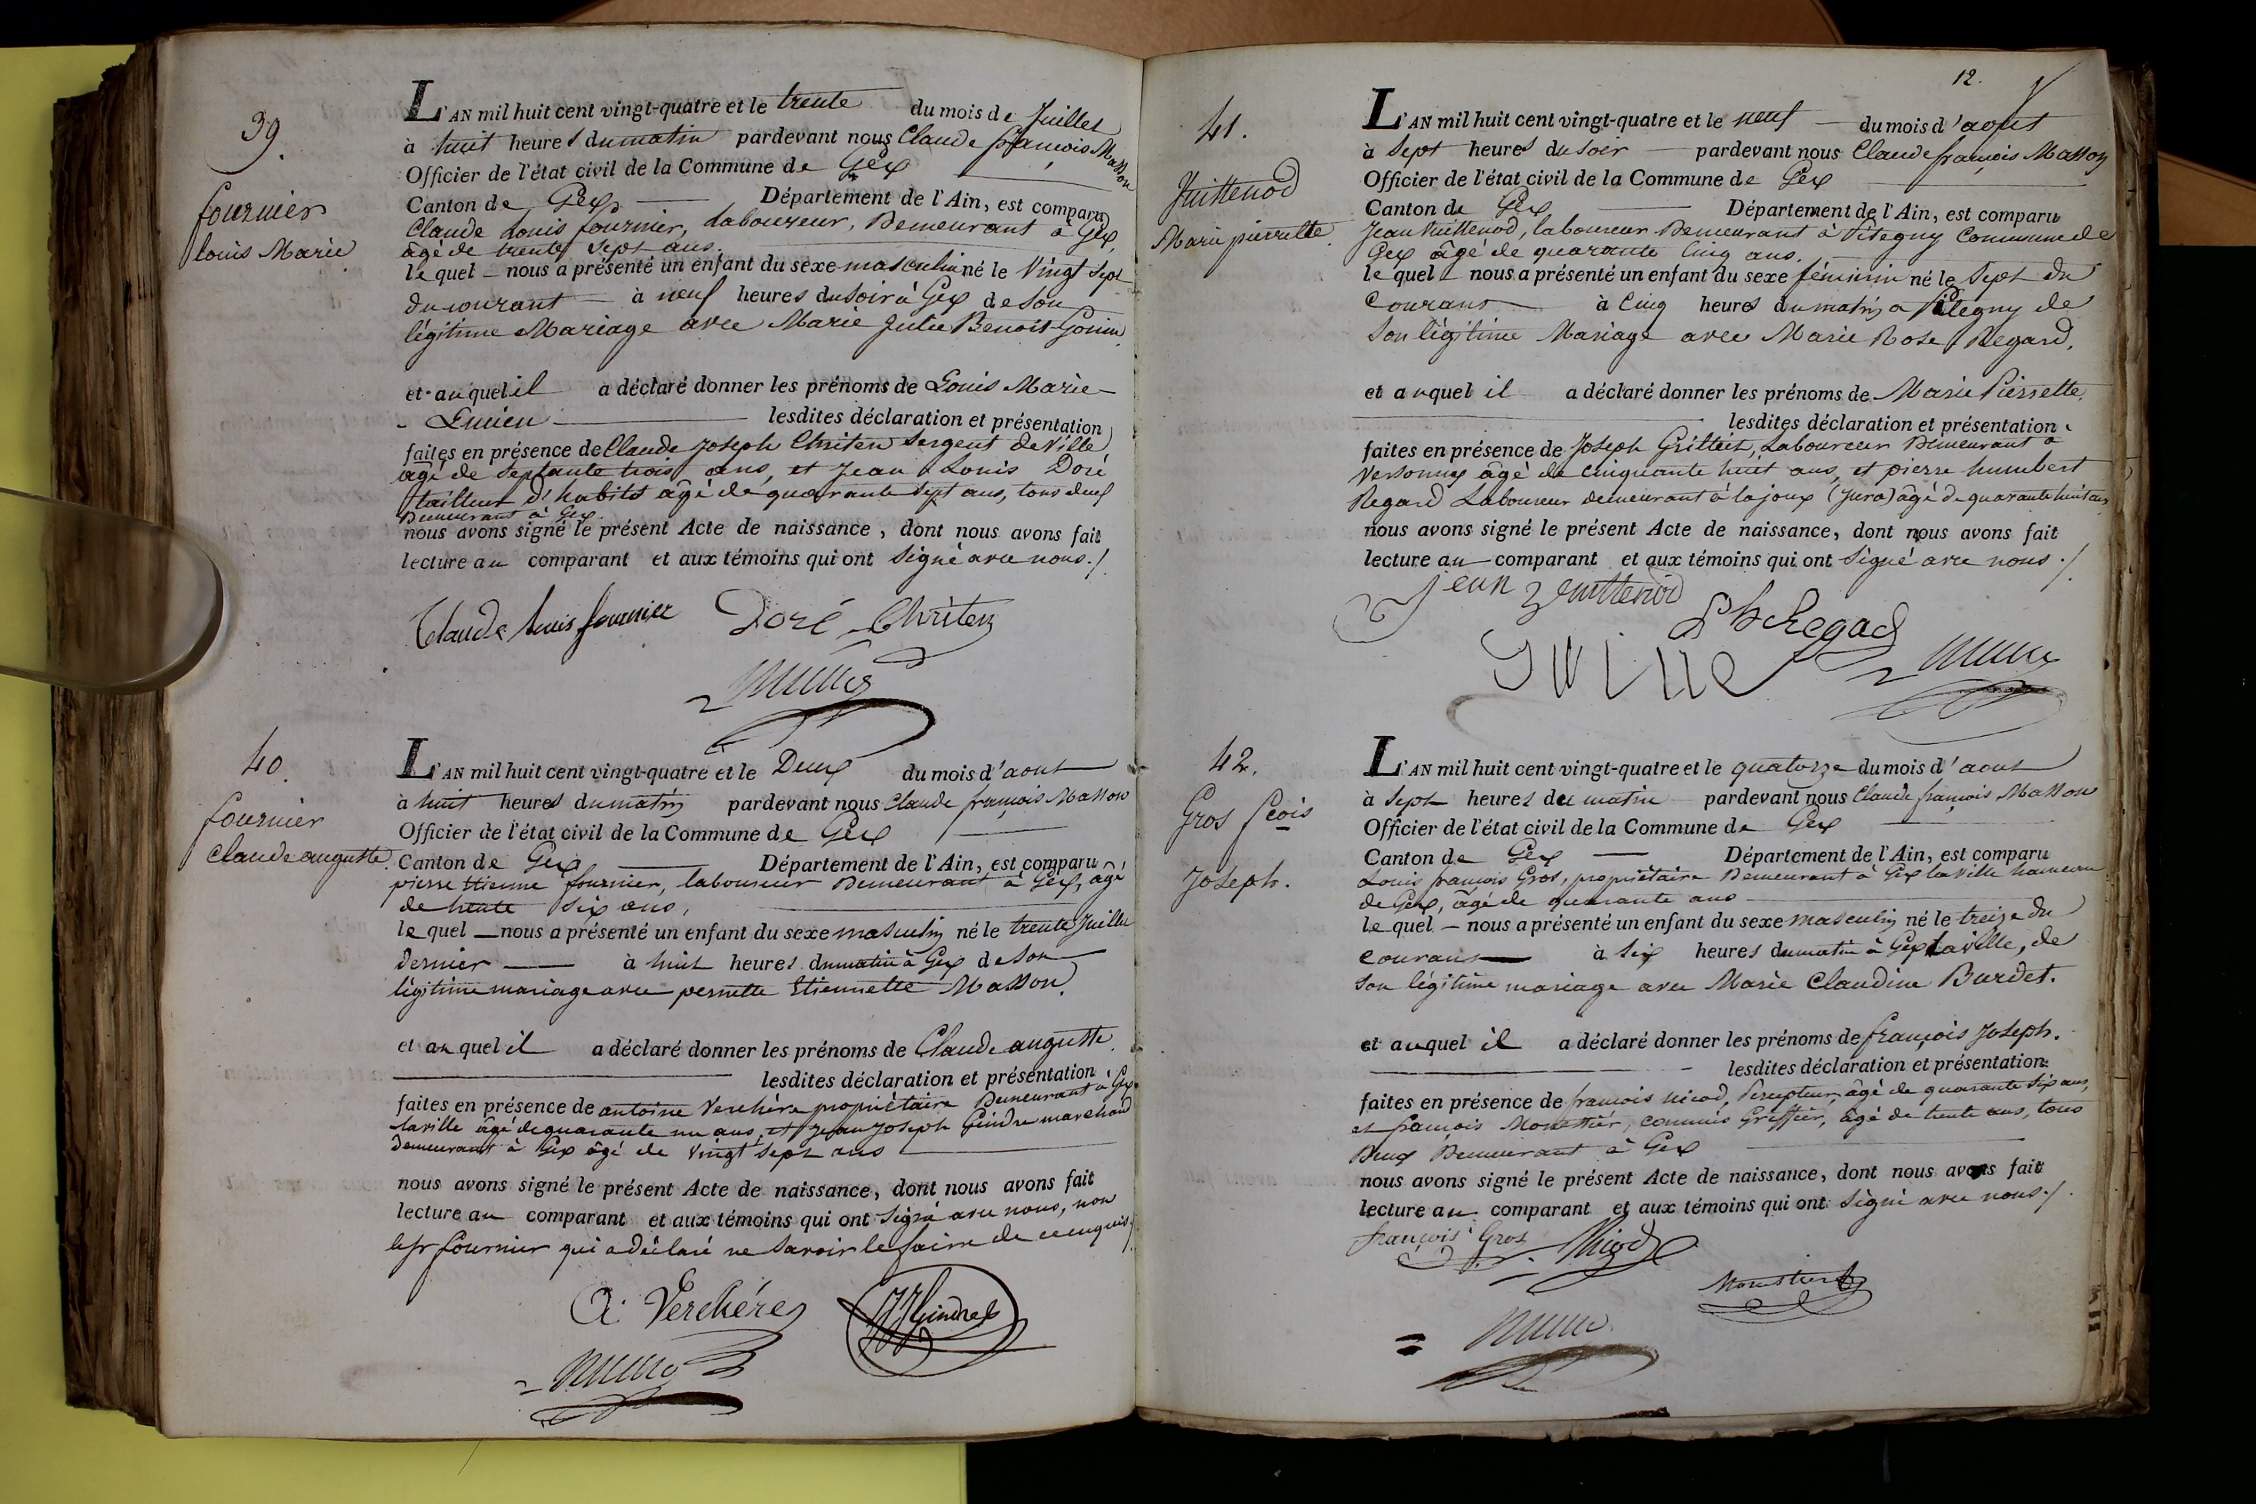 39.
fournier
louis Marie
L'AN mil huit cent vingt-quatre et le trente du mois de Juillet
à huit heures du matin pardevant nous Claude françois Masson
Officier de l'état civil de la Commune de Gex
Canton de Gex Département de l'Ain, est comparu
Claude Louis fournier, laboureur, Demeurant à Gex,
âgé de trente sept ans.
le quel nous a présenté un enfant du sexe masculin né le Vingt sept
du courant à neuf heures du soir à Gex de son
légitime Mariage avec Marie Julie Benoit Gonin
et auquel il a déclaré donner les prénoms de Louis Marie
Lucien lesdites déclaration et présentation
faites en présence de Claude Joseph Christen Sergent de Ville
âgé de Septante trois ans, et Jean Louis Doré
tailleur d'habits âgé de quarante sept ans, tous deux
Demeurant à Gex
nous avons signé le présent Acte de naissance, dont nous avons fait
lecture au comparant et aux témoins qui ont signé avec nous./.
Claude Louis fournier Doré Christen
40.
fournier
Claude auguste.
L'AN mil huit cent vingt-quatre et le Deux du mois d'aout
à huit heures du matin pardevant nous Claude françois Masson
Officier de l'état civil de la Commune de Gex
Canton de Gex Département de l'Ain, est comparu
pierre Etienne fournier, laboureur Demeurant à Gex, âgé
de trente six ans,
le quel nous a présenté un enfant du sexe masculin né le trente Juillet
dernier à huit heures du matin à Gex de son
légitime mariage avec pernette Etiennette Masson.
et auquel il a déclaré donner les prénoms de Claude auguste.
lesdites déclaration et présentation
faites en présence de antoine Verchère propriétaire Demeurant à Gex
laville âgé de quarante un ans, et Jean Joseph Gindre marchand
demeurant à Gex âgé de vingt sept ans
nous avons signé le présent Acte de naissance, dont nous avons fait
lecture au comparant et aux témoins qui ont signé avec nous, non
le sr fournier qui a déclaré ne savoir le faire de ce enquis./.
A. Verchére JJ Gindre
12.
41.
Vuittenod
Marie pierrette.
L'AN mil huit cent vingt-quatre et le neuf du mois d'aout
à sept heures du soir pardevant nous Claude françois Masson
Officier de l'état civil de la Commune de Gex
Canton de Gex Département de l'Ain, est comparu
Jean Vuittenod, laboureur Demeurant à Pitegny Commune de
Gex âgé de quarante Cinq ans.
le quel nous a présenté un enfant du sexe féminin né le sept du
Courant à Cinq heures du matin a Pitegny de
son légitime Mariage avec Marie Rose Regard.
et auquel il a déclaré donner les prénoms de Marie Pierrette.
lesdites déclaration et présentation
faites en présence de Joseph Grillet, Laboureur Demeurant à
Versonnex âgé de Cinquante huit ans, et pierre humbert
Regard Laboureur demeurant à lajoux (Jura) âgé de quarante huit ans
nous avons signé le présent Acte de naissance, dont nous avons fait
lecture au comparant et aux témoins qui ont signé avec nous./.
Jean Vuittenod
ph Regad
42.
Gros fcois
Joseph.
L'AN mil huit cent vingt-quatre et le quatorze du mois d'aout
à sept heures du matin pardevant nous Claude françois Masson
Officier de l'état civil de la Commune de Gex
Canton de Gex Département de l'Ain, est comparu
Louis françois Gros, propriétaire Demeurant à Gex laville hameau
de Gex, âgé de quarante ans
le quel nous a présenté un enfant du sexe masculin né le treize du
courant à six heures du matin à Gex laville, de
son légitime mariage avec Marie Claudine Burdet.
et auquel il a déclaré donner les prénoms de françois Joseph.
lesdites déclaration et présentation
faites en présence de francois Nicod, percepteur, âgé de quarante six ans,
et françois Monestier, commis Greffier, âgé de trente ans, tous
Deux Demeurant à Gex
nous avons signé le présent Acte de naissance, dont nous avons fait
lecture au comparant et aux témoins qui ont signé avec nous./.
françois Gros Nicod
Monestier